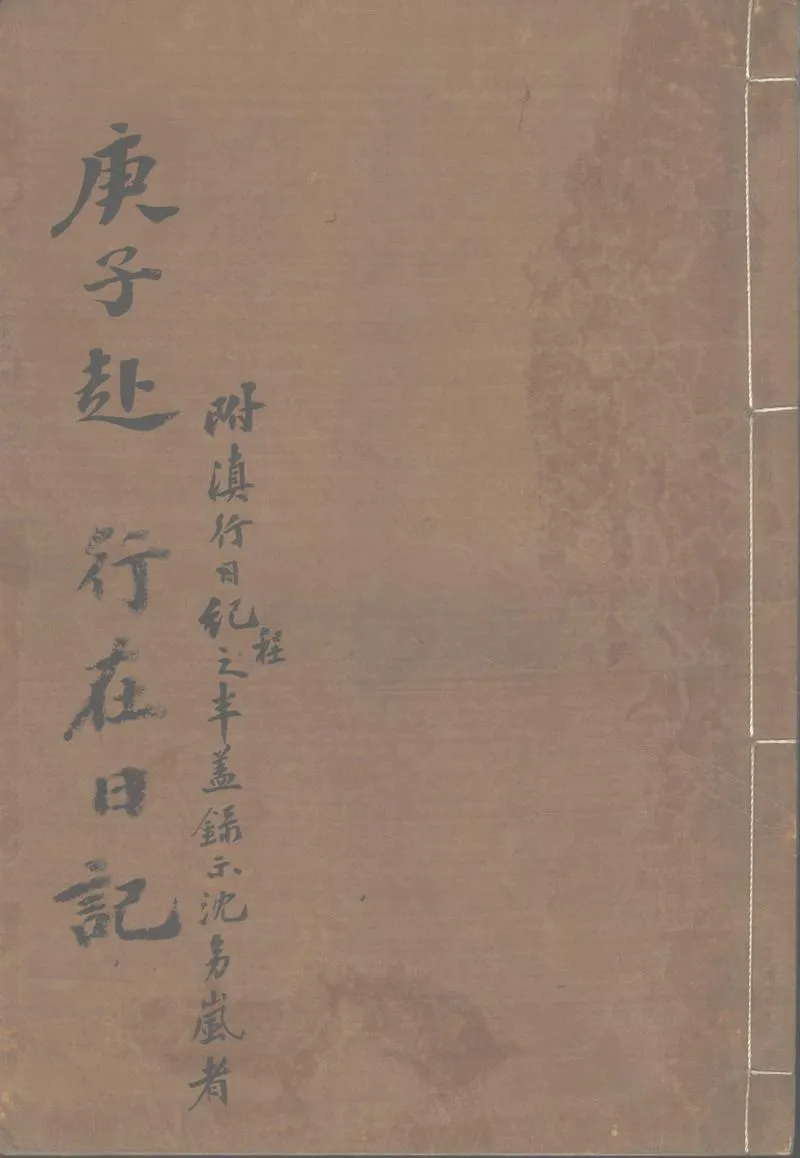 庚子赴 行在日記
附滇行日紀程之半蓋錄示沈嵐者